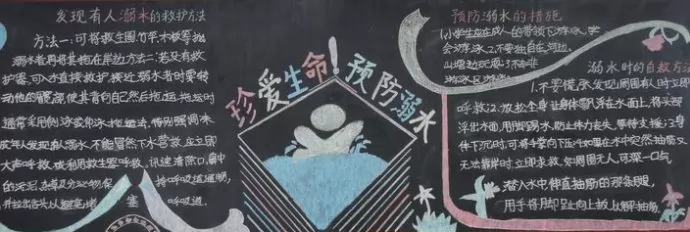 发现有人溺水的救护方法
方法一:可将救生圈、竹竿、木板等抛
溺水者再将其拖至岸边方法二:若没有救
护器,可入水直接救护.接近溺水者时要转
动他的髋部,使其背向自己然后拖运.拖运时
通常采用侧泳或仰泳拖运法.特别强调未
成年人发现有人溺水,不能冒然下水营救,应立即
大声呼救,或利用救生器呼救.迅速清除口、鼻中
的污泥
保持呼吸道通畅
并拉出舌头以避免堵
塞
呼吸道
珍爱生命!预防溺水
预防溺水的措施
1.小学生应在成人的带领下游泳.学
会游泳.2.不要独自在河边、
山塘边玩耍.3.不去非
游泳区游泳
溺水时的自救方法
1.不要慌张,发现周围有人时立即
呼救.2.放松全身,让身体飘浮在水面上,将头部
浮出水面,用脚踢水,防止体力丧失,等待救援.3.身
体下沉时,可将手掌向下压.4.如果在水中突然抽筋,又
无法靠岸时,立即求救.如周围无人,可深一口气
潜入水中,伸直抽筋的那条腿,
用手将脚趾向上扳,以解抽筋.